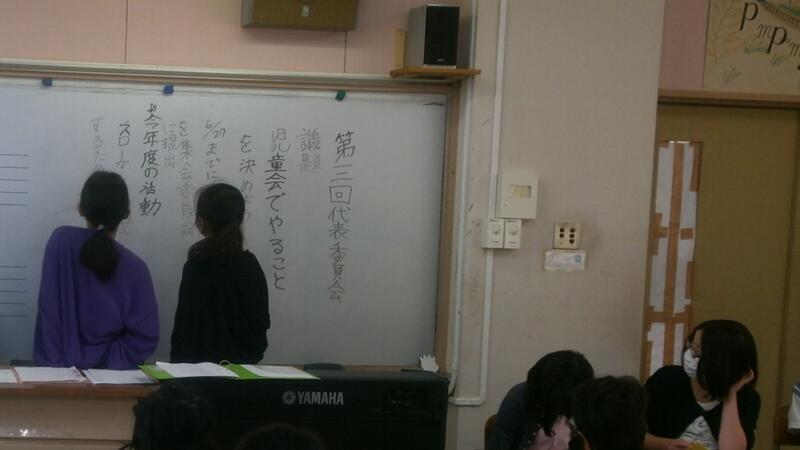 第三回代表委員会
議題
児童会でやること
を決めよう
6/27までに
を集会委員会
に提出
☆今年度の活動
スローガ
するた
YAMAHA